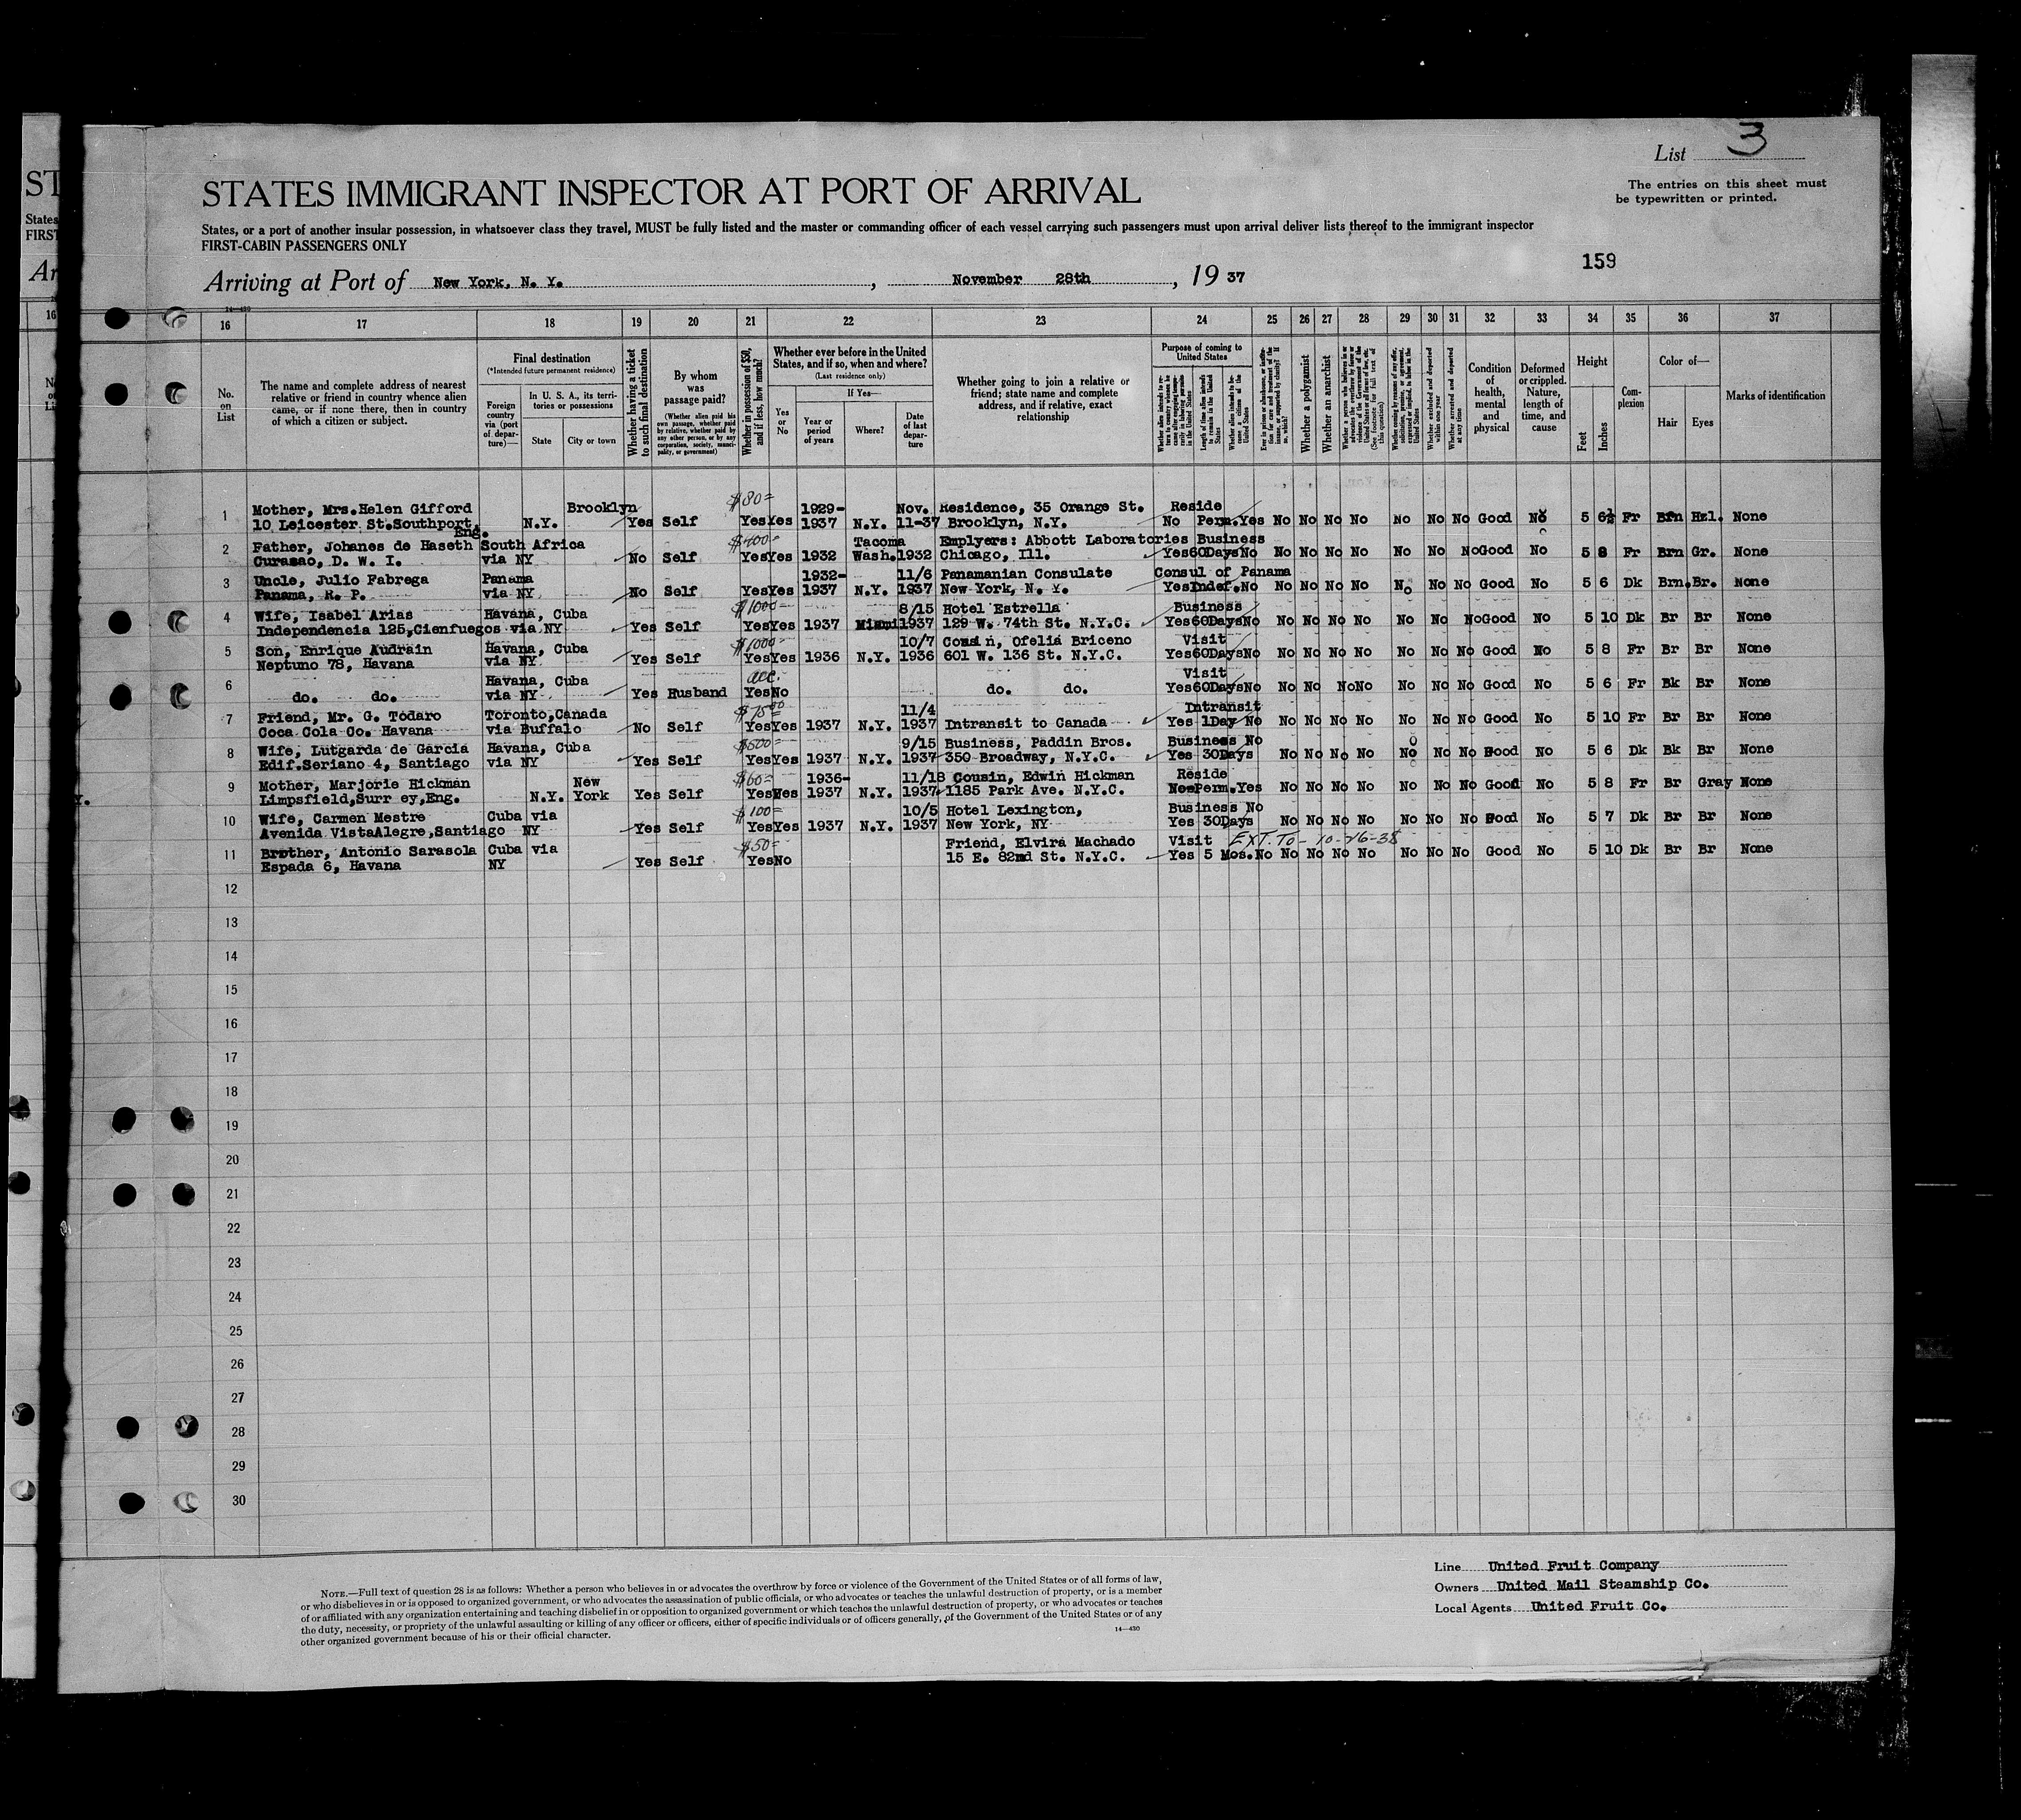 List 3
The entries on this sheet must
be typewritten or printed.
STATES IMMIGRANT INSPECTOR AT PORT OF ARRIVAL
States, or a port of another insular possession, in whatsoever class they travel, MUST be fully listed and the master or commanding officer of each vessel carrying such passengers must upon arrival deliver lists thereof to the immigrant inspector
FIRST-CABIN PASSENGERS ONLY
159
Arriving at Port of New York, N. Y. , November 28th , 19 37
16 17 18 19 20 21 22 23 24 25 26 27 28 29 30 31 32 33 34 35 36 37
No. on List
The name and complete address of nearest
relative or friend in country whence alien
came, or if none there, then in country
of which a citizen or subject.
Final destination
(*Intended future permanent residence)
Foreign country via (port of departure)—
In U. S. A., its territories or possessions
State
City or town
Whether having a ticket to such final destination
By whom was passage paid?
(Whether alien paid his own passage, whether paid by relative, whether paid by any other person, or by any corporation, society, municipality, or government)
Whether in possession of $50, and if less, how much?
Whether ever before in the United States, and if so, when and where?
(Last residence only)
Yes or No
If Yes—
Year or period of years
Where?
Date of last departure
Whether going to join a relative or
friend; state name and complete
address, and if relative, exact
relationship
Purpose of coming to United States
Whether a polygamist
Whether an anarchist
Condition of health, mental and physical
Deformed or crippled. Nature, length of time, and cause
Height
Feet
Inches
Complexion
Color of—
Hair
Eyes
Marks of identification
1 Mother, Mrs. Helen Gifford Brooklyn $80= 1929- Nov. Residence, 35 Orange St. Reside
10 Leicester St. Southport, Eng. N.Y. Yes Self Yes Yes 1937 N.Y. 11-37 Brooklyn, N.Y. No Perm. Yes No No No No No No No Good No 5 6½ Fr Brn Hzl. None
2 Father, Johanes de Haseth South Africa $400= Tacoma Emplyers: Abbott Laboratories Business
Curasao, D. W. I. via NY No Self Yes Yes 1932 Wash. 1932 Chicago, Ill. Yes 60Days No No No No No No No No Good No 5 8 Fr Brn Gr. None
3 Uncle, Julio Fabrega Panama 1932- 11/6 Panamanian Consulate Consul of Panama
Panama, R. P. via NY No Self Yes Yes 1937 N.Y. 1937 New York, N. Y. Yes Indef. No No No No No No No No Good No 5 6 Dk Brn. Br. None
4 Wife, Isabel Arias Havana, Cuba $1000= 8/15 Hotel Estrella Business
Independencia 125, Cienfuegos via NY Yes Self Yes Yes 1937 Miami 1937 129 W. 74th St. N.Y.C. Yes 60Days No No No No No No No No Good No 5 10 Dk Br Br None
5 Son, Enrique Audrain Havana, Cuba $1000= 10/7 Cousin, Ofelia Briceno Visit
Neptuno 78, Havana via NY Yes Self Yes Yes 1936 N.Y. 1936 601 W. 136 St. N.Y.C. Yes 60Days No No No No No No No No Good No 5 8 Fr Br Br None
6 Havana, Cuba acc. Visit
do. do. via NY Yes Husband Yes No do. do. Yes 60Days No No No No No No No No Good No 5 6 Fr Bk Br None
7 Friend, Mr. G. Todaro Toronto, Canada 11/4 Intransit
Coca Cola Co. Havana via Buffalo No Self Yes Yes 1937 N.Y. 1937 Intransit to Canada Yes 1Day No No No No No No No No Good No 5 10 Fr Br Br None
8 Wife, Lutgarda de Garcia Havana, Cuba $500= 9/15 Business, Paddin Bros. Business No
Edif. Seriano 4, Santiago via NY Yes Self Yes Yes 1937 N.Y. 1937 350 Broadway, N.Y.C. Yes 30Days No No No No No No No Good No 5 6 Dk Bk Br None
9 Mother, Marjorie Hickman New $60= 1936- 11/18 Cousin, Edwin Hickman Reside
Limpsfield, Surr ey, Eng. N.Y. York Yes Self Yes Yes 1937 N.Y. 1937 1185 Park Ave. N.Y.C. Perm. Yes No No No No No No No Good No 5 8 Fr Br Gray None
10 Wife, Carmen Mestre Cuba via $100= 10/5 Hotel Lexington, Business No
Avenida VistaAlegre, Santiago NY Yes Self Yes Yes 1937 N.Y. 1937 New York, NY Yes 30Days No No No No No No No Good No 5 7 Dk Br Br None
11 Brother, Antonio Sarasola Cuba via $50= Friend, Elvira Machado Visit EXT. TO - 10-16-38
Espada 6, Havana NY Yes Self Yes No 15 E. 82nd St. N.Y.C. Yes 5 Mos. No No No No No No No No Good No 5 10 Dk Br Br None
12
13
14
15
16
17
18
19
20
21
22
23
24
25
26
27
28
29
30
NOTE.—Full text of question 28 is as follows: Whether a person who believes in or advocates the overthrow by force or violence of the Government of the United States or of all forms of law,
or who disbelieves in or is opposed to organized government, or who advocates the assassination of public officials, or who advocates or teaches the unlawful destruction of property, or is a member
of or affiliated with any organization entertaining and teaching disbelief in or opposition to organized government or which teaches the unlawful destruction of property, or who advocates or teaches
the duty, necessity, or propriety of the unlawful assaulting or killing of any officer or officers, either of specific individuals or of officers generally, of the Government of the United States or of any
other organized government because of his or their official character.
14—430
Line United Fruit Company
Owners United Mail Steamship Co.
Local Agents United Fruit Co.